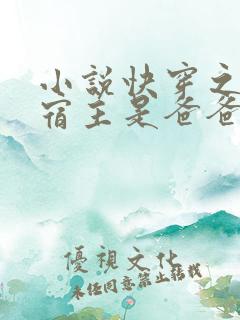 小説快穿之
宿主是爸爸
優視文化
未经同意禁止转载